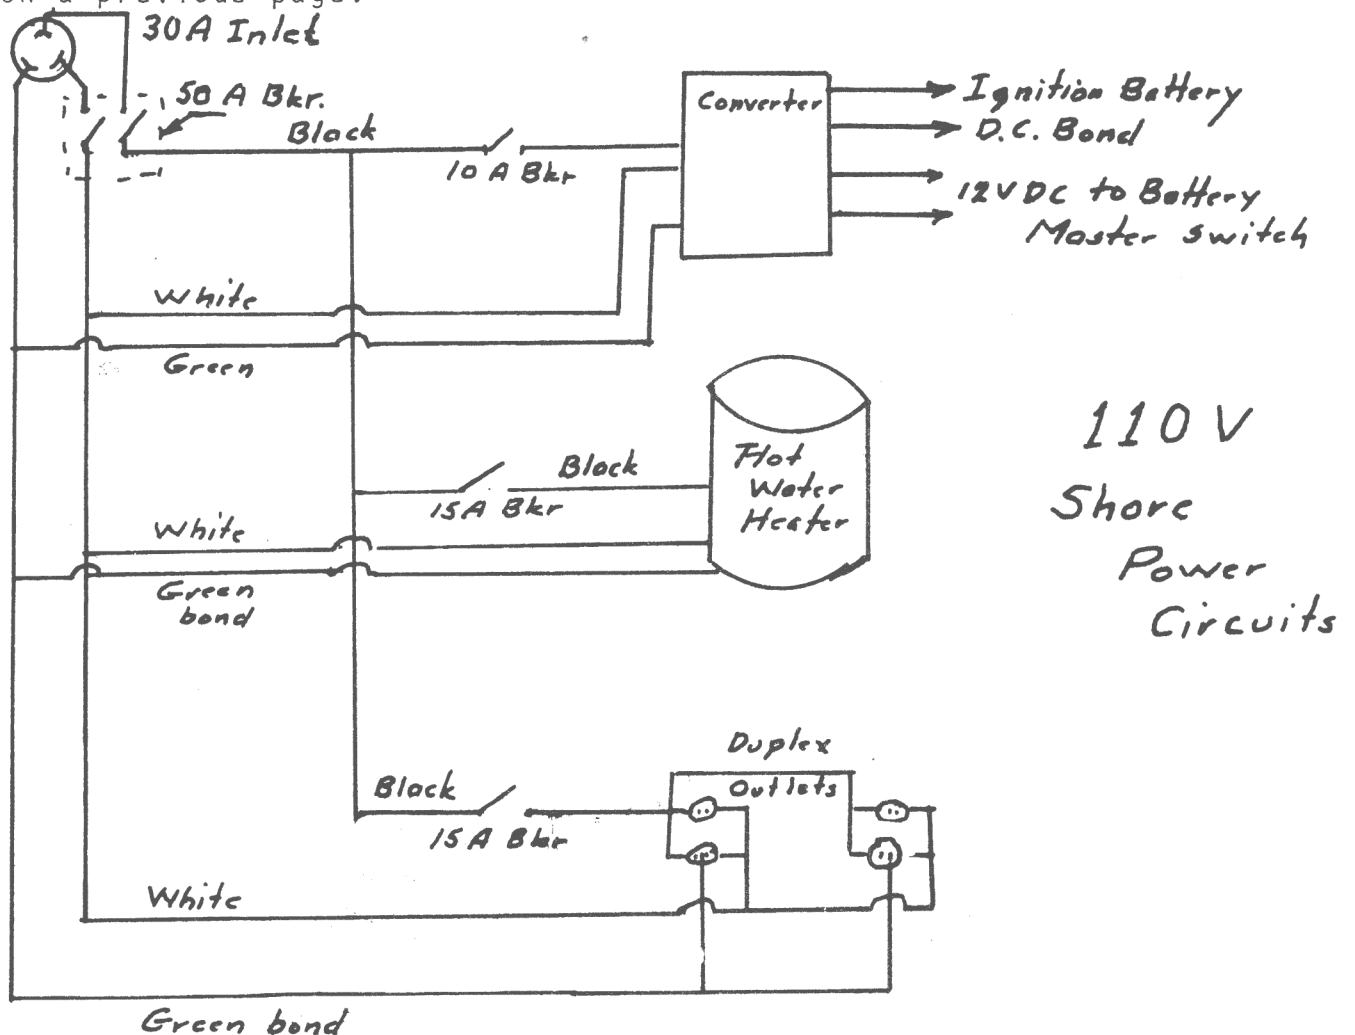 on a previous page.
30A Inlet
50 A Bkr.
Black
10 A Bkr
Converter
Ignition Battery
D.C. Bond
12V DC to Battery
Master switch
White
Green
Black
15A Bkr
Hot
Water
Heater
White
Green
bond
110 V
Shore
Power
Circuits
Duplex
Outlets
Black
15A Bkr
White
Green bond